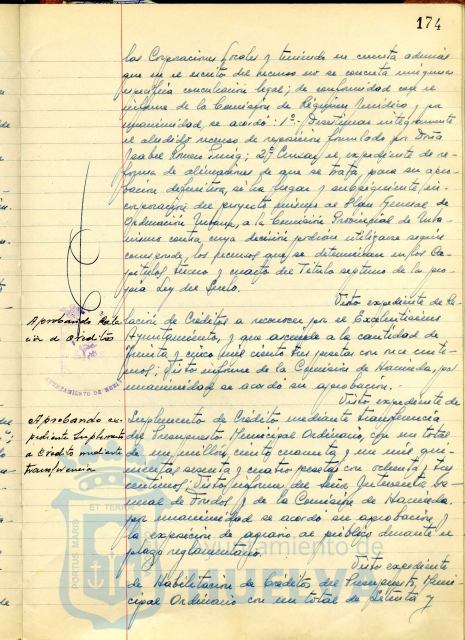 174
las Corporaciones Locales y teniendo en cuenta además
que en el escrito del recurso no se concreta ninguna
específica conciliación legal; de conformidad con el
informe de la Comisión de Régimen Jurídico y por
unanimidad, se acordó: 1º.- Desestimar íntegramente
el aludido recurso de reposición formulado por Doña
Isabel Romero Puig; 2º Cursar el expediente de re-
forma de alineaciones de que se trata, para su apro-
bación definitiva, si ha lugar y subsiguiente in-
corporación del proyecto mismo al Plan General de
Ordenación Urbana, a la Comisión Provincial de Urba-
nismo contra cuya decisión podrán utilizarse según
corresponde los recursos que se determinan en los Ca-
pítulos tercero y cuarto del Título septimo de la pro-
pia Ley del Suelo.
Visto expediente de Re-
Aprobando Rela-
ción de Creditos
lación de Créditos a reconocer por el Excelentísimo
Ayuntamiento, y que asciende a la cantidad de
treinta y cinco mil ciento tres pesetas con once cénti-
mos; Visto informe de la Comisión de Hacienda, por
unanimidad se acordó su aprobación.-
AYUNTAMIENTO DE
Visto expediente de
Aprobando ex-
pediente Suplemento
a Crédito mediante
transferencia
Suplemento de Crédito mediante transferencia
del Presupuesto Municipal Ordinario, con un total
de un millón, ciento cuarenta y un mil qui-
nientas sesenta y cuatro pesetas con ochenta y tres
céntimos; Visto informe del Señor Interventor ba-
mal de Fondos y de la Comisión de Hacienda,
por unanimidad se acordó su aprobación y
la exposición de agravio al público durante el
plazo reglamentario.
Visto expediente
de Habilitación de Créditos del Presupuesto Muni-
cipal Ordinario con un total de setenta y
ET TERRÆ
PORTUS MARIS
Ayuntamiento de
HUELVA